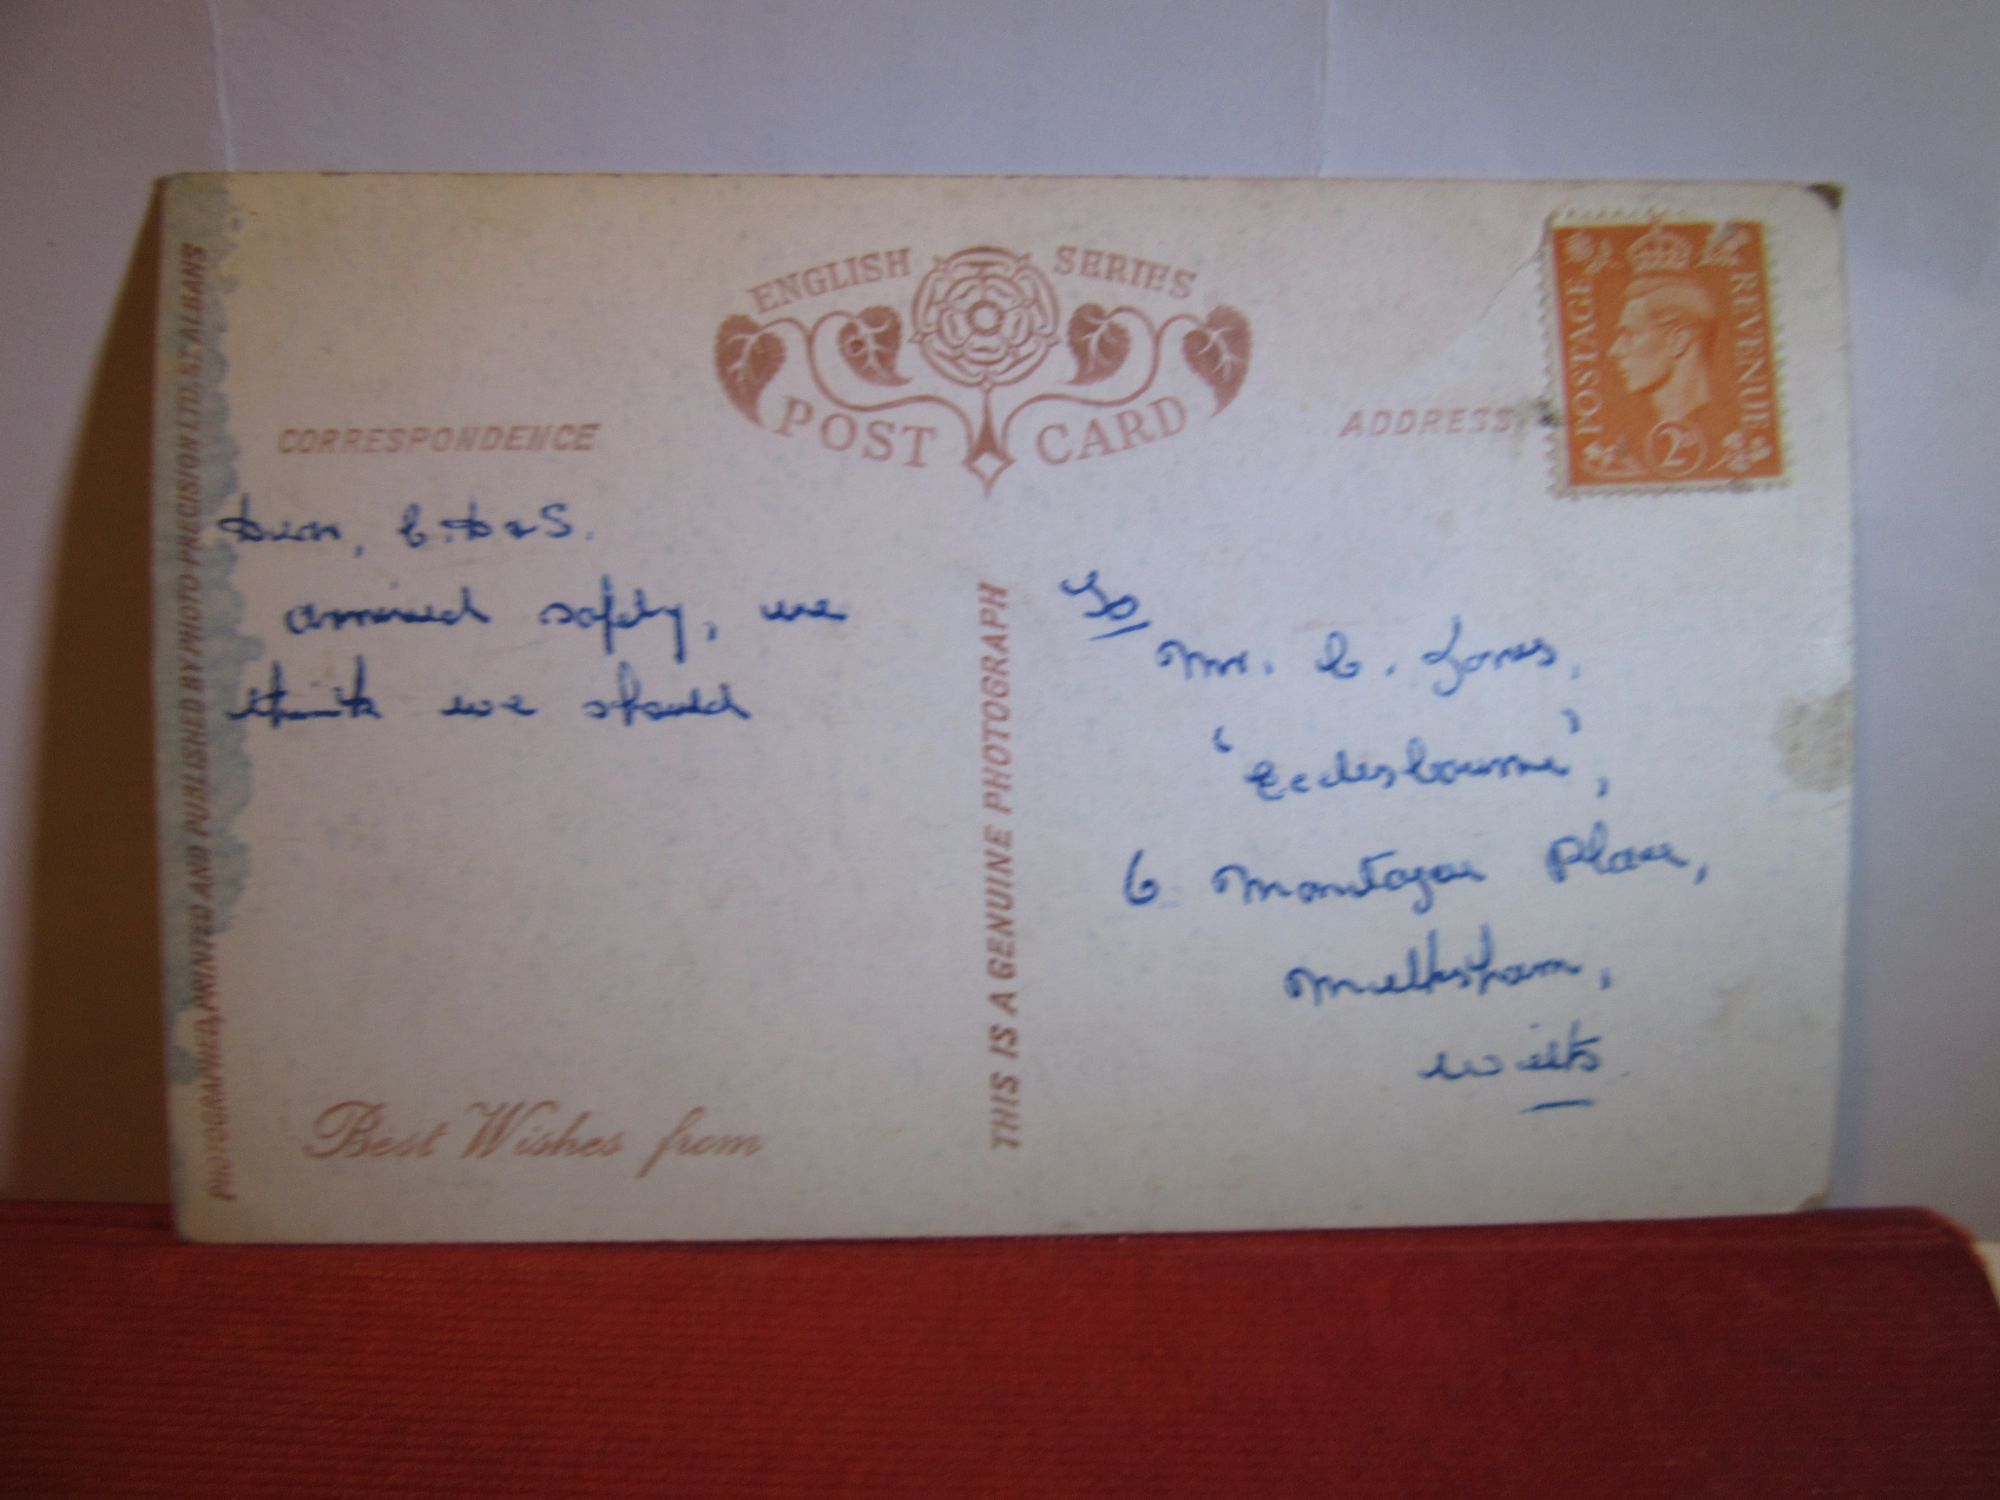 PHOTOGRAPHED, PRINTED AND PUBLISHED BY PHOTO-PRECISION LTD. ST. ALBANS
ENGLISH SERIES
POST CARD
CORRESPONDENCE
ADDRESS
POSTAGE
REVENUE
2D
Dear, C. D & S.
arrived safely, we
think we should
Best Wishes from
THIS IS A GENUINE PHOTOGRAPH
To/
Mr. C. Jones,
'Ecclesbourne',
6 Montague Place,
Melksham,
Wilts.